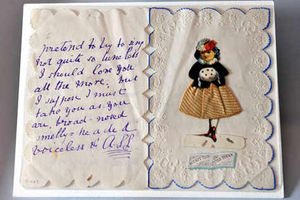 pretend to try to say
not quite so
I should love you
all the more, but
I suppose I must
take you as you
are, broad-nosed
smelly-headed
voiceless &